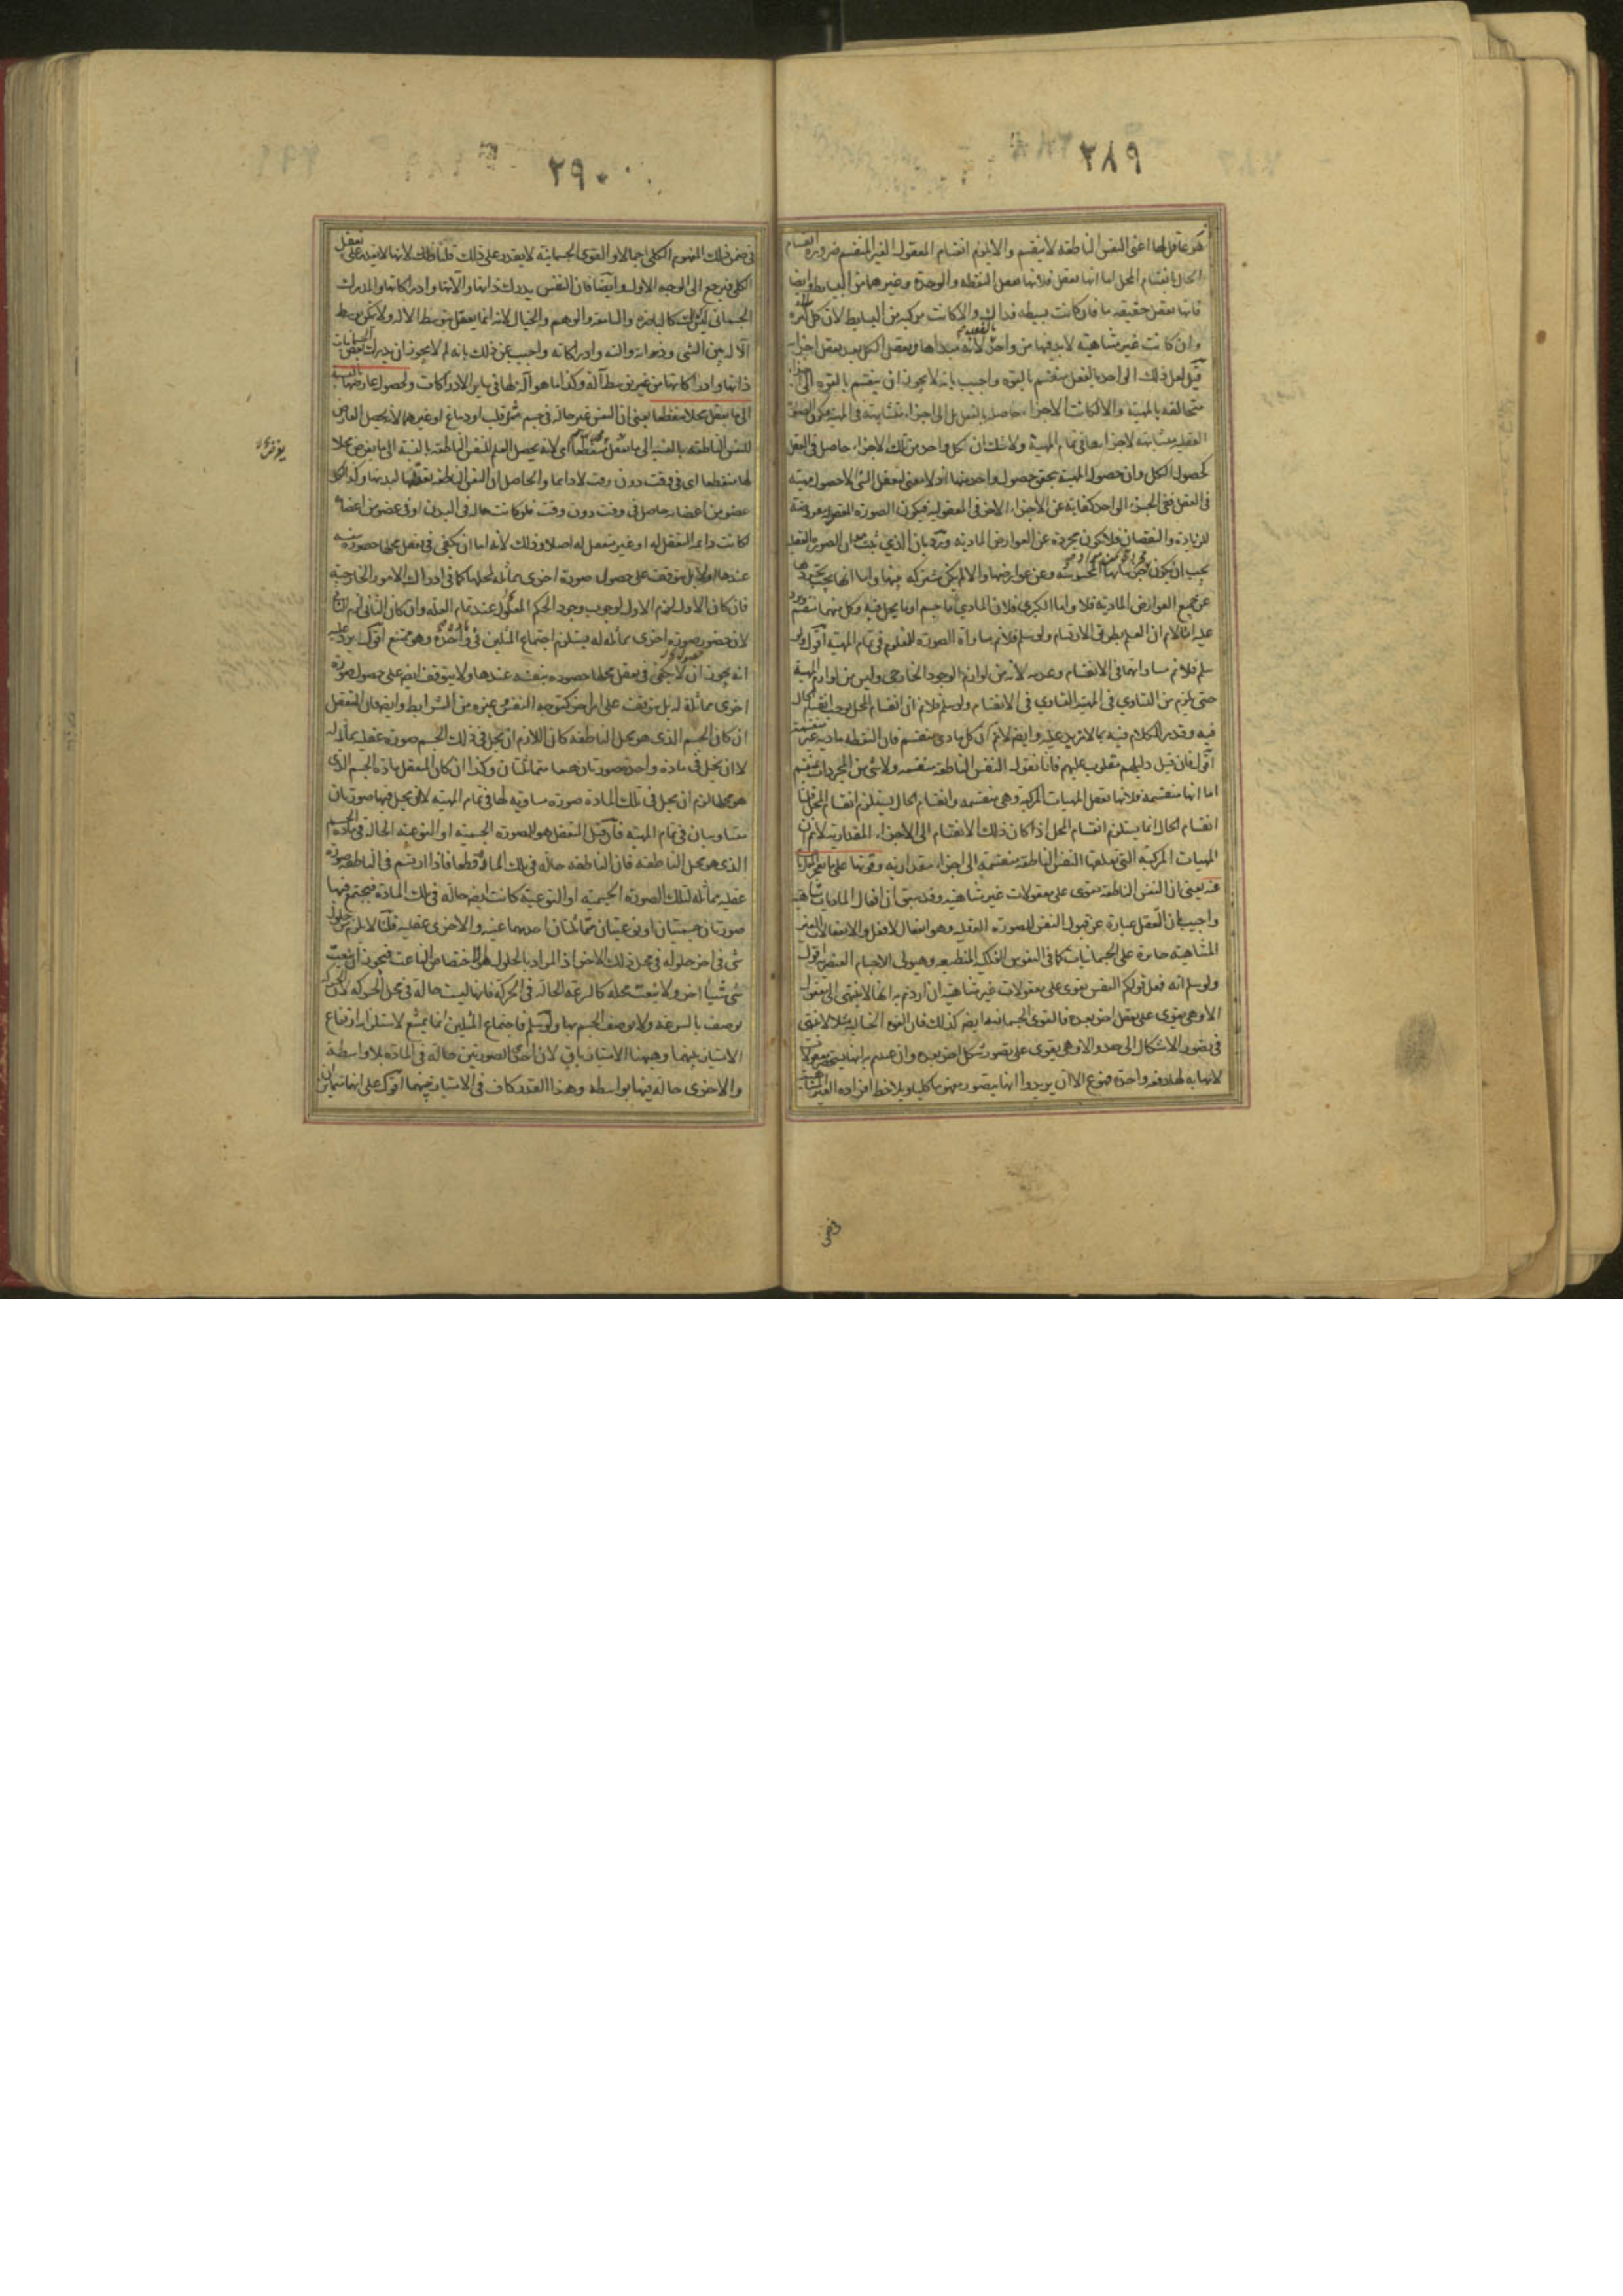 ٢٨٩
هو عاقل لها اعنى النفس الناطقه لا ينقسم والا يلزم انقسام المعقول الغير المنقسم ضرورة انقسام
الحال بانقسام المحل اما انها تعقل فلانها تعقل النقطه والوحدة وغيرهما من البسايط وايضا
فانها تعقل حقيقة ما فان كانت بسيطه فذاك والا كانت مركبه من البسايط لان كل كثرة
وان كانت غير متناهيه لابد فيها من واحد بالفعل لانه مبداها وتعقل الكل بعد تعقل اجزائه
قيل لعل ذلك الى احد بالفعل منقسم بالقوه واجيب بانه لا يجوز ان ينقسم بالقوه الى اجزاء
متخالفه بالمهية والا لكانت الاجزاء حاصله بالفعل بل الى اجزاء متشابهة فى المهية فتكون الصورة
العقليه متشابهة لاجزائها فى تمام المهية ولا شك ان كل واحد من تلك الاجزاء حاصل فى العقل
لحصول الكل وان حصول المهية يحقق حصول واحد منها اذ لا معنى لتعقل الشى الا حصول مهيته
فى العقل ففى الجزء الواحد كفاية عن الاجزاء الاخر فى المعقوليه فيكون الصورة المعقوله معروضة
للزيادة والنقصان فلا تكون مجردة عن العوارض المادية ورد بان الذى ثبت هو ان الصورة العقليه
يجب ان يكون مجردة عن المحسوسة وعن عوارضها والا لم يكن مشتركه بينها واما انها يجب تجردها
عن جميع العوارض المادية فلا واما الكبرى فلان المادى اما جسم او ما يحل فيه وكل منهما منقسم ويرد
عليه انا لا نم ان العلم بطريق الارتسام ولو سلم فلا نم مساواة الصورة للمعلوم فى تمام المهية اقول ولو
سلم فلا نم مساواتهما فى الانقسام وعدمه لانه من لوازم الوجود الخارجى وليس من لوازم المهية
حتى يلزم من التساوى فى المهية التساوى فى الانقسام ولو سلم فلا نم ان انقسام المحل يوجب انقسام الحال
فيه وقد مر الكلام فيه بما لا مزيد عليه وايضا لا نم ان كل مادى منقسم فان النقطه ماديه غير منقسمة
اقول فان قيل دليلهم مقلوب عليهم فانا نقول النفس الناطقه منقسمه ولا شى من المجردات بمنقسم
اما انها منقسمة فلانها تعقل المهيات المركبة وهى منقسمه وانقسام الحال يستلزم انقسام المحل قلنا
انقسام الحال انما يستلزم انقسام المحل اذا كان ذلك الانقسام الى الاجزاء المقدارية لا نم ان
المهيات المركبة التى تعقلها النفس الناطقه منقسمة الى اجزاء مقداريه وقوتها على ما تعجز المقارنات
عنه يعنى ان النفس الناطقه تقوى على معقولات غير متناهيه وقد سبق ان افعال الماديات متناهيه
واجيب بان التعقل عبارة عن قبول النفس للصورة العقليه وهو انفعال لا فعل والانفعالات الغير
المتناهيه جائزة على الجسمانيات كما فى النفوس الفلكيه المنطبعه وهيولى الاجسام العنصريه اقول
ولو سلم انه فعل قولكم النفس تقوى على معقولات غير متناهيه ان اردتم به انها لا تنتهى الى معقول
الا وهى تقوى على تعقل اخر بعده فالقوى الجسمانيه ايضا كذلك فان القوه الخياليه مثلا لا تنتهى
فى تصور الاشكال الى حد الا وهى يقوى على تصور شكل اخر بعده وان عنيتم به انها يستحضر معقولات
لا نهايه لها دفعه واحدة فممنوع الا ان يريدوا انها يتصور مفهوما كليا ويلاحظ افراده الغير المتناهيه
فى ضمن
٢٩٠
فى ضمن ذلك المفهوم الكلى اجمالا والقوى الجسمانية لا يقدر على ذلك قلنا ذلك لانها لا يقدر على تعقل
الكلى فيرجع الى الوجه الاول وايضا فان النفس يدرك ذاتها وآلاتها وادراكاتها والمدرك
الجسمانى ليس كذلك كالباصرة والسامعة والوهم والخيال لانه انما يعقل بتوسط الاله ولا يمكن توسط
الاله بين الشى وذاته والته وادراكاته واجيب عن ذلك بانه لم لا يجوز ان يدرك بعض الجسمانيات
ذاتها وادراكاتها من غير توسط آلة وكذا ما هو آلة لها فى ساير الادراكات ولحصول عارضها بالنسبه
الى ما يعقل محلا منقطعا يعنى ان النفس غير حاله فى جسم مثل قلب او دماغ او غيرهما لانه يحصل العارض
للنفس الناطقه بالنسبه الى ما يعقل منقطعا اى لانه يحصل العلم للنفس الناطقه بالنسبة الى ما يعرض محلا
لها منقطعا اى فى وقت دون وقت لا دايما والحاصل ان النفس الناطقه تعقلها لبدنها وكذا لكل
عضو من اعضائه حاصل فى وقت دون وقت فلو كانت حاله فى البدن او فى عضو من اعضائه
لكانت دايمه التعقل له او غير متعقل له اصلا وذلك لانه اما ان يكفى فى تعقل محلها حضوره بنفسه
عندها اولا بل يتوقف على حصول صورة اخرى مماثله لمحلها كما فى ادراك الامور الخارجية
فان كان الاول لزم الاول لوجوب وجود الحكم المعلول عند تمام العله وان كان الثانى لزم الثانى
لان حضور صورة اخرى مماثله له يستلزم اجتماع المثلين فى مادة واحدة وهو ممتنع اقول يرد عليه
انه يجوز ان لا يكفى فى تعقل محلها حضوره بنفسه عندها ولا يتوقف ايضا على حصول صورة
اخرى مماثلة له بل يتوقف على امر اخر كتوجه النفس وغيره من الشرايط وايضا فان المتعقل
ان كان الجسم الذى هو محل الناطقه كان اللازم ان يحل فى ذلك الجسم صورة عقليه مماثله له
لا ان يحل فى مادة واحدة صورتان هما متماثلتان وكذا ان كان المتعقل مادة الجسم الذى
هو محلها لزم ان يحل فى تلك المادة صورة مساويه لها فى تمام المهية لا ان يحل فيها صورتان
متساويتان فى تمام المهية فان قيل المتعقل هو الصورة الجسمية او النوعية الحالة فى مادة الجسم
الذى هو محل الناطقه فان الناطقه حالة فى تلك المادة قطعا فاذا ارتسم فى الناطقه صورة
عقليه مماثله لتلك الصورة الجسمية او النوعية كانت ايضا حالة فى تلك المادة فيجتمع فيها
صورتان جسميتان او نوعيتان متماثلتان احدهما عينيه والاخرى عقليه قلنا لا يلزم من حلول
شى فى اخر حلوله فى محل ذلك الاخر اذ المراد بالحلول هو الاختصاص الناعت فيجوز ان ينعت
شى شيئا اخر ولا ينعت محله كالسرعة الحالة فى الحركة فانها ليست حالة فى محل الحركه لان الحركة
توصف بالسرعه ولا يوصف الجسم بها ولو سلم فاجتماع المثلين انما يمتنع لاستلزامه ارتفاع
الامتياز بينهما وههنا الامتياز باق لان احدى الصورتين حالة فى المادة بلا واسطة
والاخرى حالة فيها بواسطه وهذا القدر كاف فى الامتياز بينهما اقول على انهما متمايزان